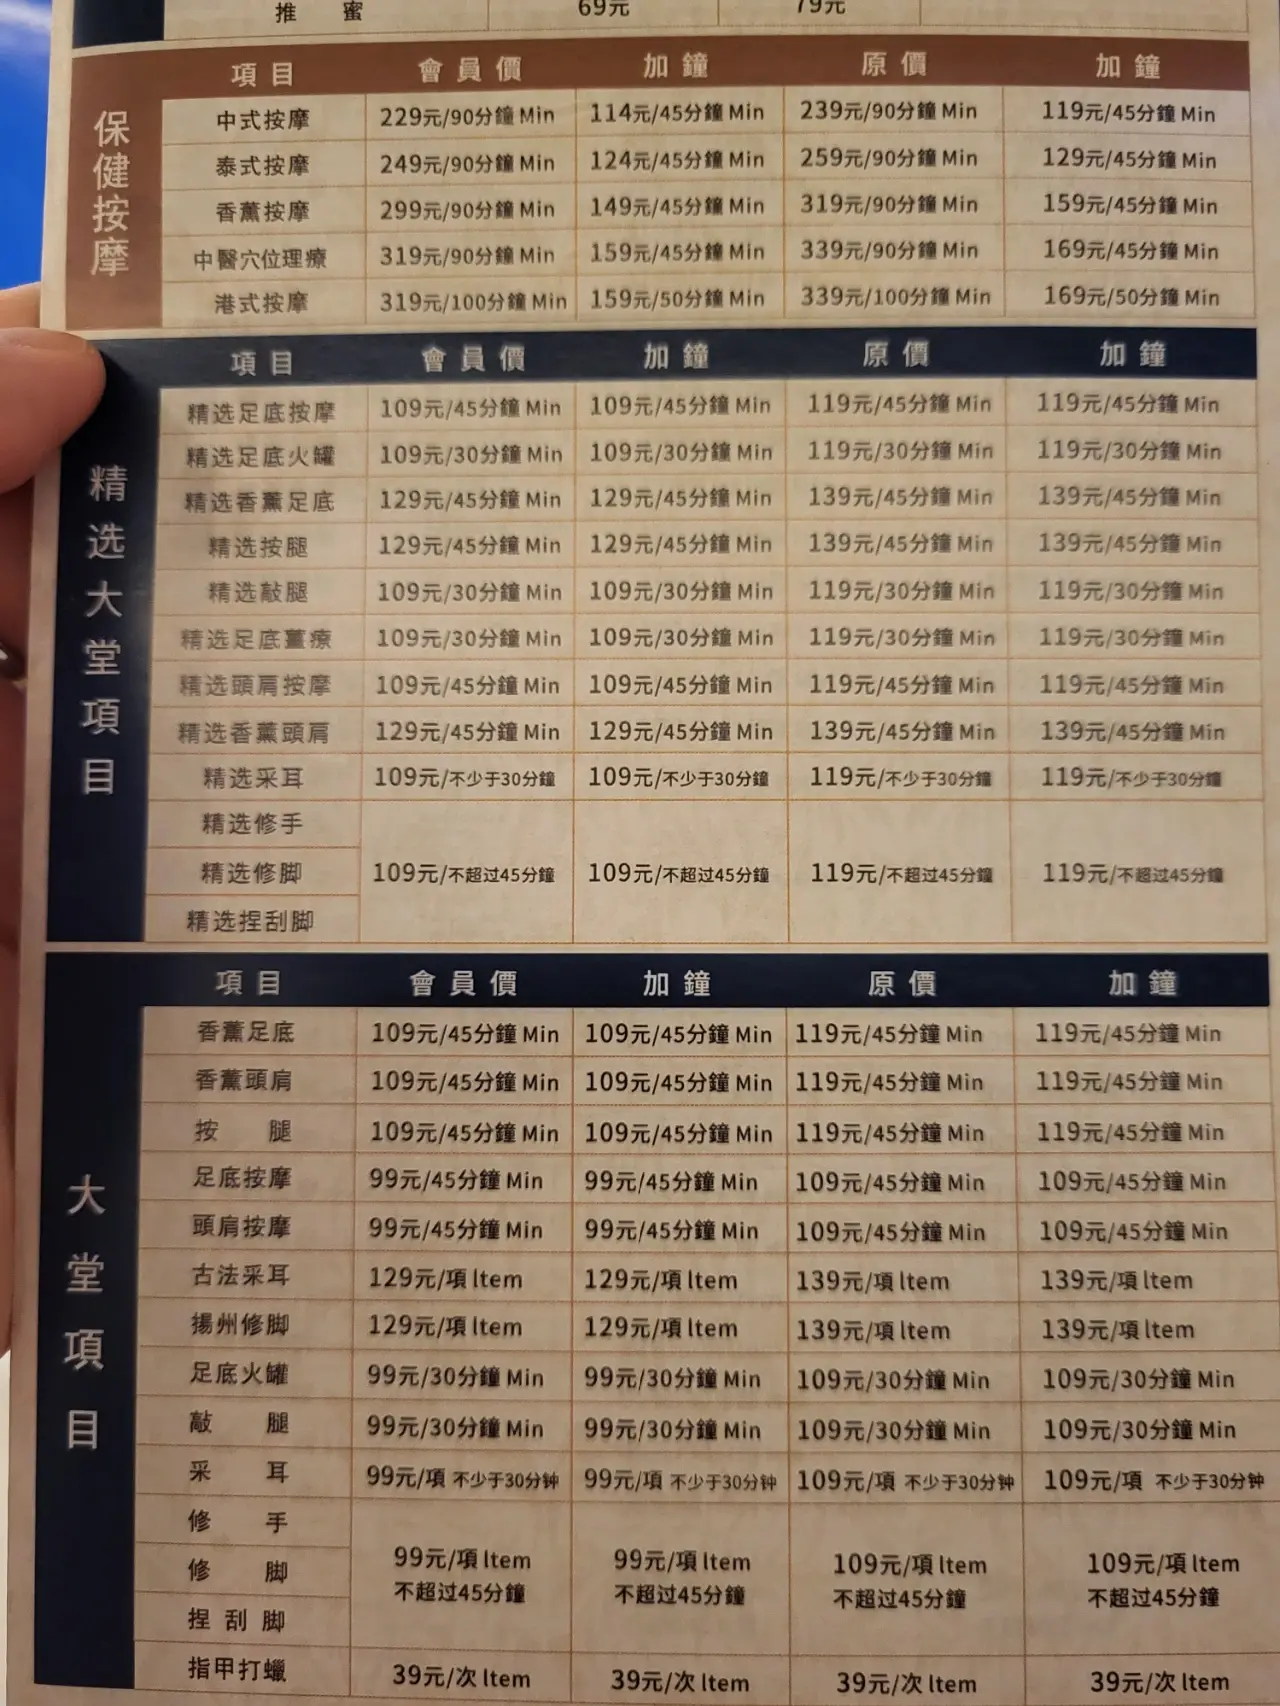 推 蜜 69元 79元
保健按摩
項目 會員價 加鐘 原價 加鐘
中式按摩 229元/90分鐘 Min 114元/45分鐘 Min 239元/90分鐘 Min 119元/45分鐘 Min
泰式按摩 249元/90分鐘 Min 124元/45分鐘 Min 259元/90分鐘 Min 129元/45分鐘 Min
香薰按摩 299元/90分鐘 Min 149元/45分鐘 Min 319元/90分鐘 Min 159元/45分鐘 Min
中醫穴位理療 319元/90分鐘 Min 159元/45分鐘 Min 339元/90分鐘 Min 169元/45分鐘 Min
港式按摩 319元/100分鐘 Min 159元/50分鐘 Min 339元/100分鐘 Min 169元/50分鐘 Min
精选大堂項目
項目 會員價 加鐘 原價 加鐘
精选足底按摩 109元/45分鐘 Min 109元/45分鐘 Min 119元/45分鐘 Min 119元/45分鐘 Min
精选足底火罐 109元/30分鐘 Min 109元/30分鐘 Min 119元/30分鐘 Min 119元/30分鐘 Min
精选香薰足底 129元/45分鐘 Min 129元/45分鐘 Min 139元/45分鐘 Min 139元/45分鐘 Min
精选按腿 129元/45分鐘 Min 129元/45分鐘 Min 139元/45分鐘 Min 139元/45分鐘 Min
精选敲腿 109元/30分鐘 Min 109元/30分鐘 Min 119元/30分鐘 Min 119元/30分鐘 Min
精选足底薑療 109元/30分鐘 Min 109元/30分鐘 Min 119元/30分鐘 Min 119元/30分鐘 Min
精选頭肩按摩 109元/45分鐘 Min 109元/45分鐘 Min 119元/45分鐘 Min 119元/45分鐘 Min
精选香薰頭肩 129元/45分鐘 Min 129元/45分鐘 Min 139元/45分鐘 Min 139元/45分鐘 Min
精选采耳 109元/不少于30分鐘 109元/不少于30分鐘 119元/不少于30分鐘 119元/不少于30分鐘
精选修手
精选修脚 109元/不超过45分鐘 109元/不超过45分鐘 119元/不超过45分鐘 119元/不超过45分鐘
精选捏刮脚
大堂項目
項目 會員價 加鐘 原價 加鐘
香薰足底 109元/45分鐘 Min 109元/45分鐘 Min 119元/45分鐘 Min 119元/45分鐘 Min
香薰頭肩 109元/45分鐘 Min 109元/45分鐘 Min 119元/45分鐘 Min 119元/45分鐘 Min
按 腿 109元/45分鐘 Min 109元/45分鐘 Min 119元/45分鐘 Min 119元/45分鐘 Min
足底按摩 99元/45分鐘 Min 99元/45分鐘 Min 109元/45分鐘 Min 109元/45分鐘 Min
頭肩按摩 99元/45分鐘 Min 99元/45分鐘 Min 109元/45分鐘 Min 109元/45分鐘 Min
古法采耳 129元/項 ltem 129元/項 ltem 139元/項 ltem 139元/項 ltem
揚州修脚 129元/項 ltem 129元/項 ltem 139元/項 ltem 139元/項 ltem
足底火罐 99元/30分鐘 Min 99元/30分鐘 Min 109元/30分鐘 Min 109元/30分鐘 Min
敲 腿 99元/30分鐘 Min 99元/30分鐘 Min 109元/30分鐘 Min 109元/30分鐘 Min
采 耳 99元/項 不少于30分钟 99元/項 不少于30分钟 109元/項 不少于30分钟 109元/項 不少于30分钟
修 手
修 脚 99元/項 ltem 99元/項 ltem 109元/項 ltem 109元/項 ltem
不超过45分鐘 不超过45分鐘 不超过45分鐘 不超过45分鐘
捏 刮 脚
指甲打蠟 39元/次 ltem 39元/次 ltem 39元/次 ltem 39元/次 ltem